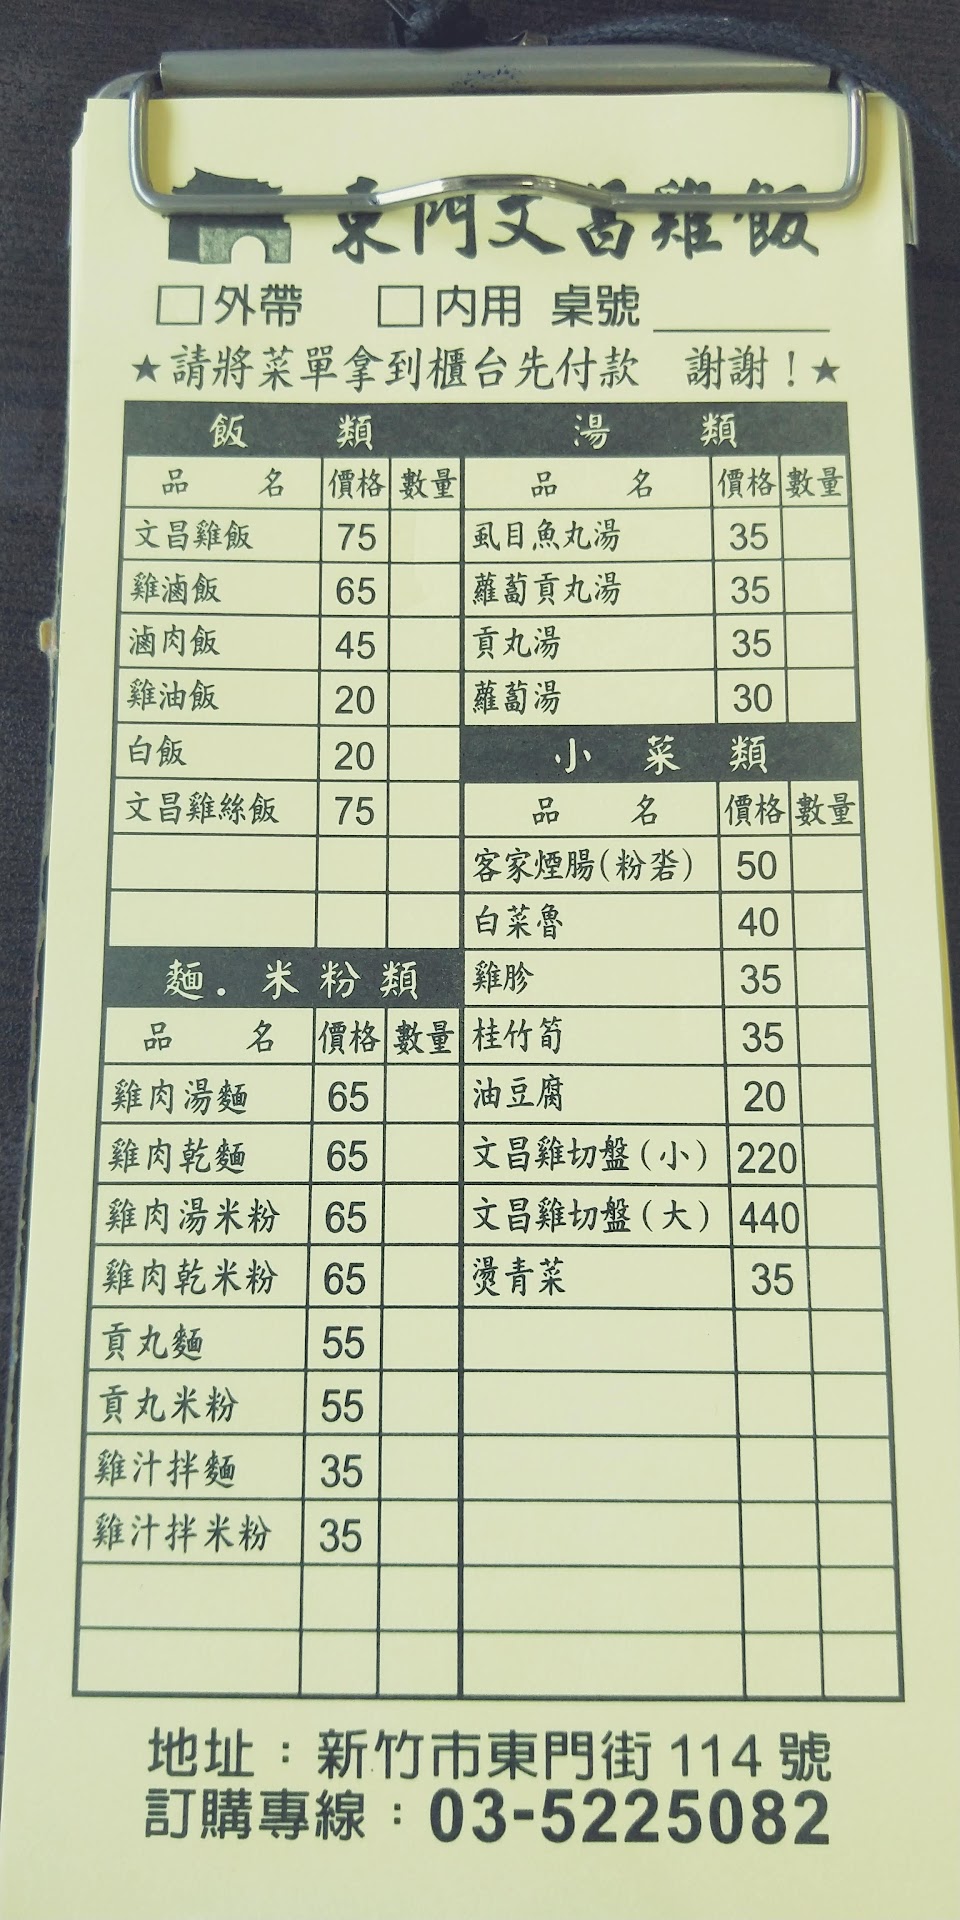 東門文昌雞飯
□外帶 □內用 桌號
★請將菜單拿到櫃台先付款 謝謝!★
飯類
品名 價格 數量
文昌雞飯 75
雞滷飯 65
滷肉飯 45
雞油飯 20
白飯 20
文昌雞絲飯 75
麵.米粉類
品名 價格 數量
雞肉湯麵 65
雞肉乾麵 65
雞肉湯米粉 65
雞肉乾米粉 65
貢丸麵 55
貢丸米粉 55
雞汁拌麵 35
雞汁拌米粉 35
湯類
品名 價格 數量
虱目魚丸湯 35
蘿蔔貢丸湯 35
貢丸湯 35
蘿蔔湯 30
小菜類
品名 價格 數量
客家煙腸(粉粩) 50
白菜魯 40
雞胗 35
桂竹筍 35
油豆腐 20
文昌雞切盤(小) 220
文昌雞切盤(大) 440
燙青菜 35
地址:新竹市東門街114號
訂購專線:03-5225082